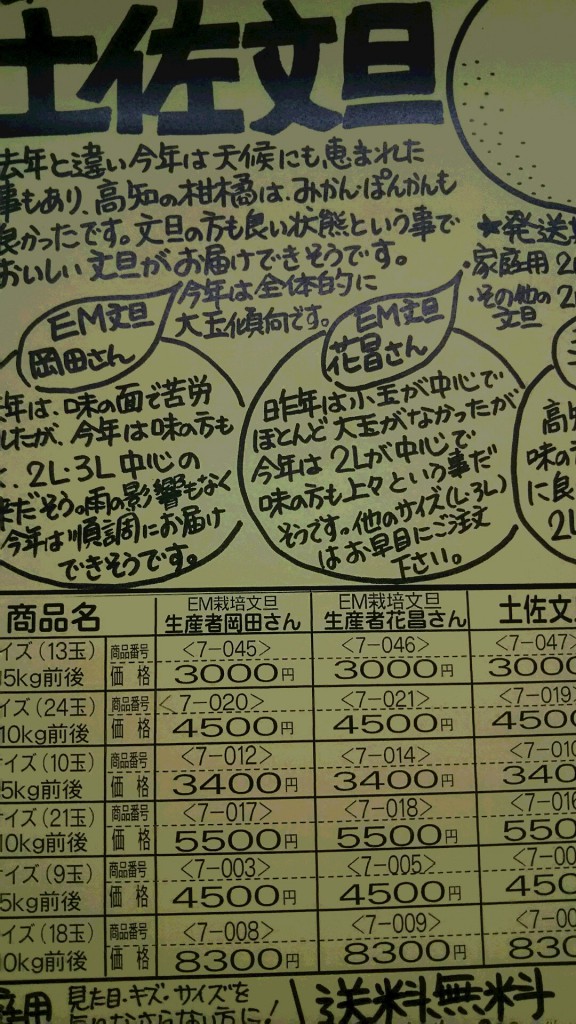 土佐文旦
去年と違い今年は天候にも恵まれた
事もあり、高知の柑橘は、みかん・ぽんかんも
良かったです。文旦の方も良い状態という事で
おいしい文旦がお届けできそうです。
今年は全体的に
大玉傾向です。
★発送
・家庭用
・その他の
文旦
EM文旦
岡田さん
年は、味の面で苦労
したが、今年は味の方も
く、2L・3L中心の
来だそう。雨の影響もなく
今年は順調にお届け
できそうです。
EM文旦
花昌さん
昨年は小玉が中心で
ほとんど大玉がなかったが
今年は2Lが中心で
味の方も上々という事だ
そうです。他のサイズ(L・3L)
はお早目にご注文
下さい。
高知
味の方
に良
2L
商品名
EM栽培文旦
生産者岡田さん
EM栽培文旦
生産者花昌さん
土佐文
イズ(13玉)
5kg前後
商品番号 <7-045> <7-046> <7-047>
価格 3000円 3000円 3000
イズ(24玉)
10kg前後
商品番号 <7-020> <7-021> <7-019
価格 4500円 4500円 450
イズ(10玉)
5kg前後
商品番号 <7-012> <7-014> <7-010
価格 3400円 3400円 340
イズ(21玉)
10kg前後
商品番号 <7-017> <7-018> <7-016
価格 5500円 5500円 550
イズ(9玉)
5kg前後
商品番号 <7-003> <7-005> <7-00
価格 4500円 4500円 450
イズ(18玉)
10kg前後
商品番号 <7-008> <7-009> <7-00
価格 8300円 8300円 830
庭用
見た目・キズ・サイズを
気になさらない方に!
送料無料